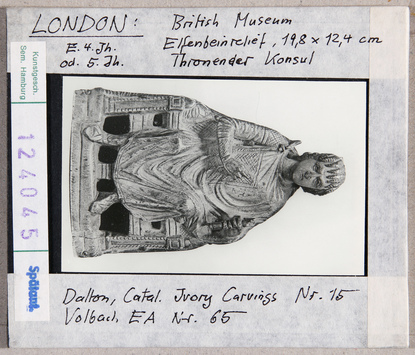 LONDON: British Museum
E. 4. Jh. Elfenbeinrelief, 19,8 x 12,4 cm
od. 5. Jh. Thronender Konsul
Kunstgesch.
Sem. Hamburg
124045
Spätant.
Dalton, Catal. Ivory Carvings Nr. 15
Volbach, EA Nr. 65